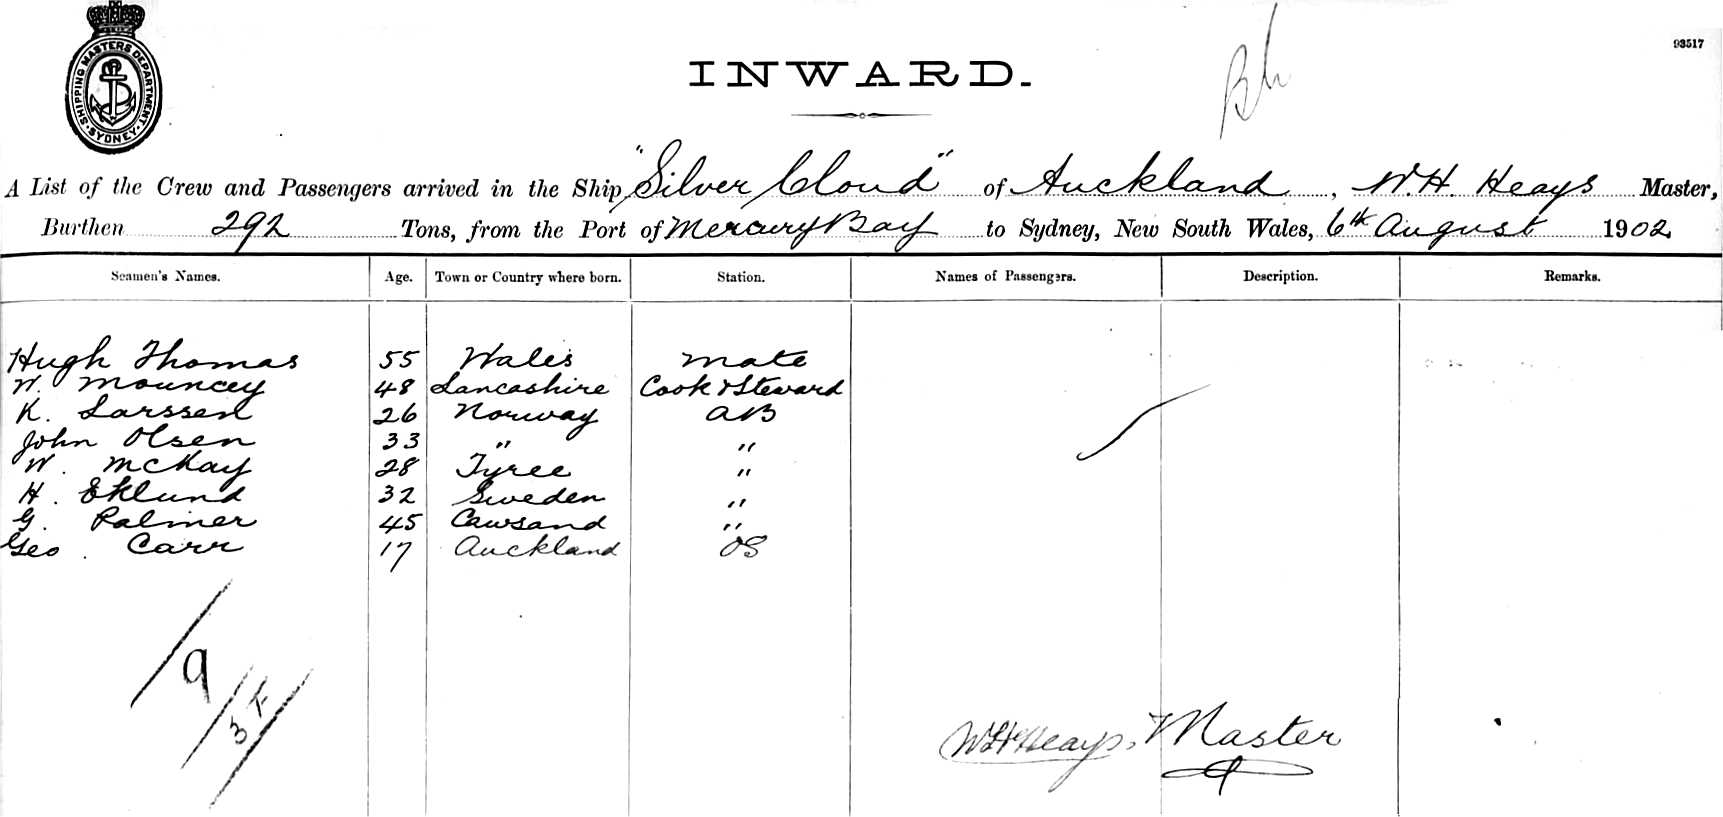 SHIPPING MASTERS DEPARTMENT. SYDNEY
93517
INWARD.
A List of the Crew and Passengers arrived in the Ship "Silver Cloud" of Auckland, W.H. Heays Master,
Burthen 292 Tons, from the Port of Mercury Bay to Sydney, New South Wales, 6th August 1902
Seamen's Names. Age. Town or Country where born. Station. Names of Passengers. Description. Remarks.
Hugh Thomas 55 Wales Mate
W. Mouncey 48 Lancashire Cook & Steward
K. Larssen 26 Norway AB
John Olsen 33 " "
W. McKay 28 Tyree "
H. Eklund 32 Sweden "
G. Palmer 45 Cawsand "
Geo. Carr 17 Auckland OS
9
3
WH Heays, Master